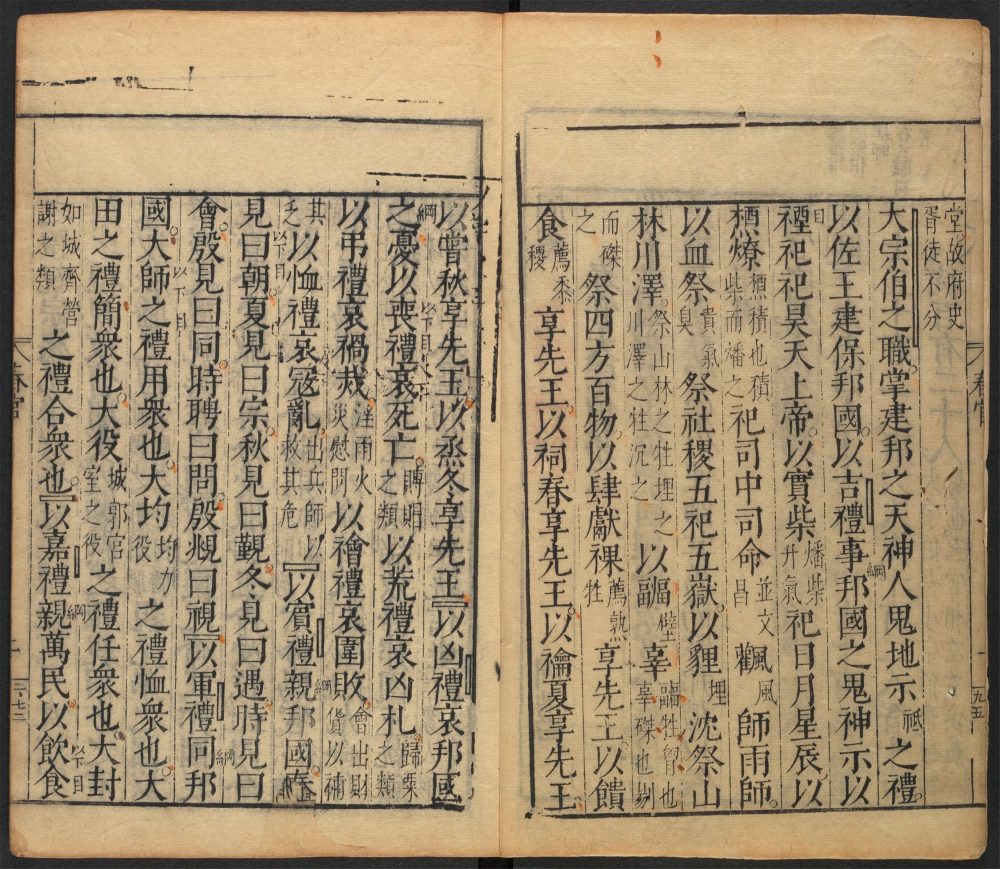 堂故府史
胥徒不分
大宗伯之職掌建邦之天神人鬼地示祗之禮
以佐王建保邦國以吉禮事邦國之鬼神示以
禋祀祀昊天上帝以實柴燔柴升氣祀日月星辰以
槱燎槱積也積柴而燔之祀司中司命並文昌飌風師雨師
以血祭貴氣臭祭社稷五祀五嶽以貍埋沈祭山
林川澤祭山林之牲埋之川澤之牲沉之以疈壁辜疈牲胷也辜磔也剔
而磔之祭四方百物以肆獻祼薦熟牲享先王以饋
食薦黍稷享先王以祠春享先王以禴夏享先王
以嘗秋享先王以烝冬享先王以凶禮哀邦國
之憂以喪禮哀死亡賻賵之類以荒禮哀凶札歸粟之類
以弔禮哀禍烖注雨火災慰問以禬禮哀圍敗會出財貨以補
其乏以恤禮哀寇亂出兵師以救其危以賓禮親邦國春
見曰朝夏見曰宗秋見曰覲冬見曰遇時見曰
會殷見曰同時聘曰問殷覜曰視以軍禮同邦
國大師之禮用衆也大均均力役之禮恤衆也大
田之禮簡衆也大役城郭宮室之役之禮任衆也大封
如城齊營謝之類之禮合衆也以嘉禮親萬民以飲食
春官
九五
春官